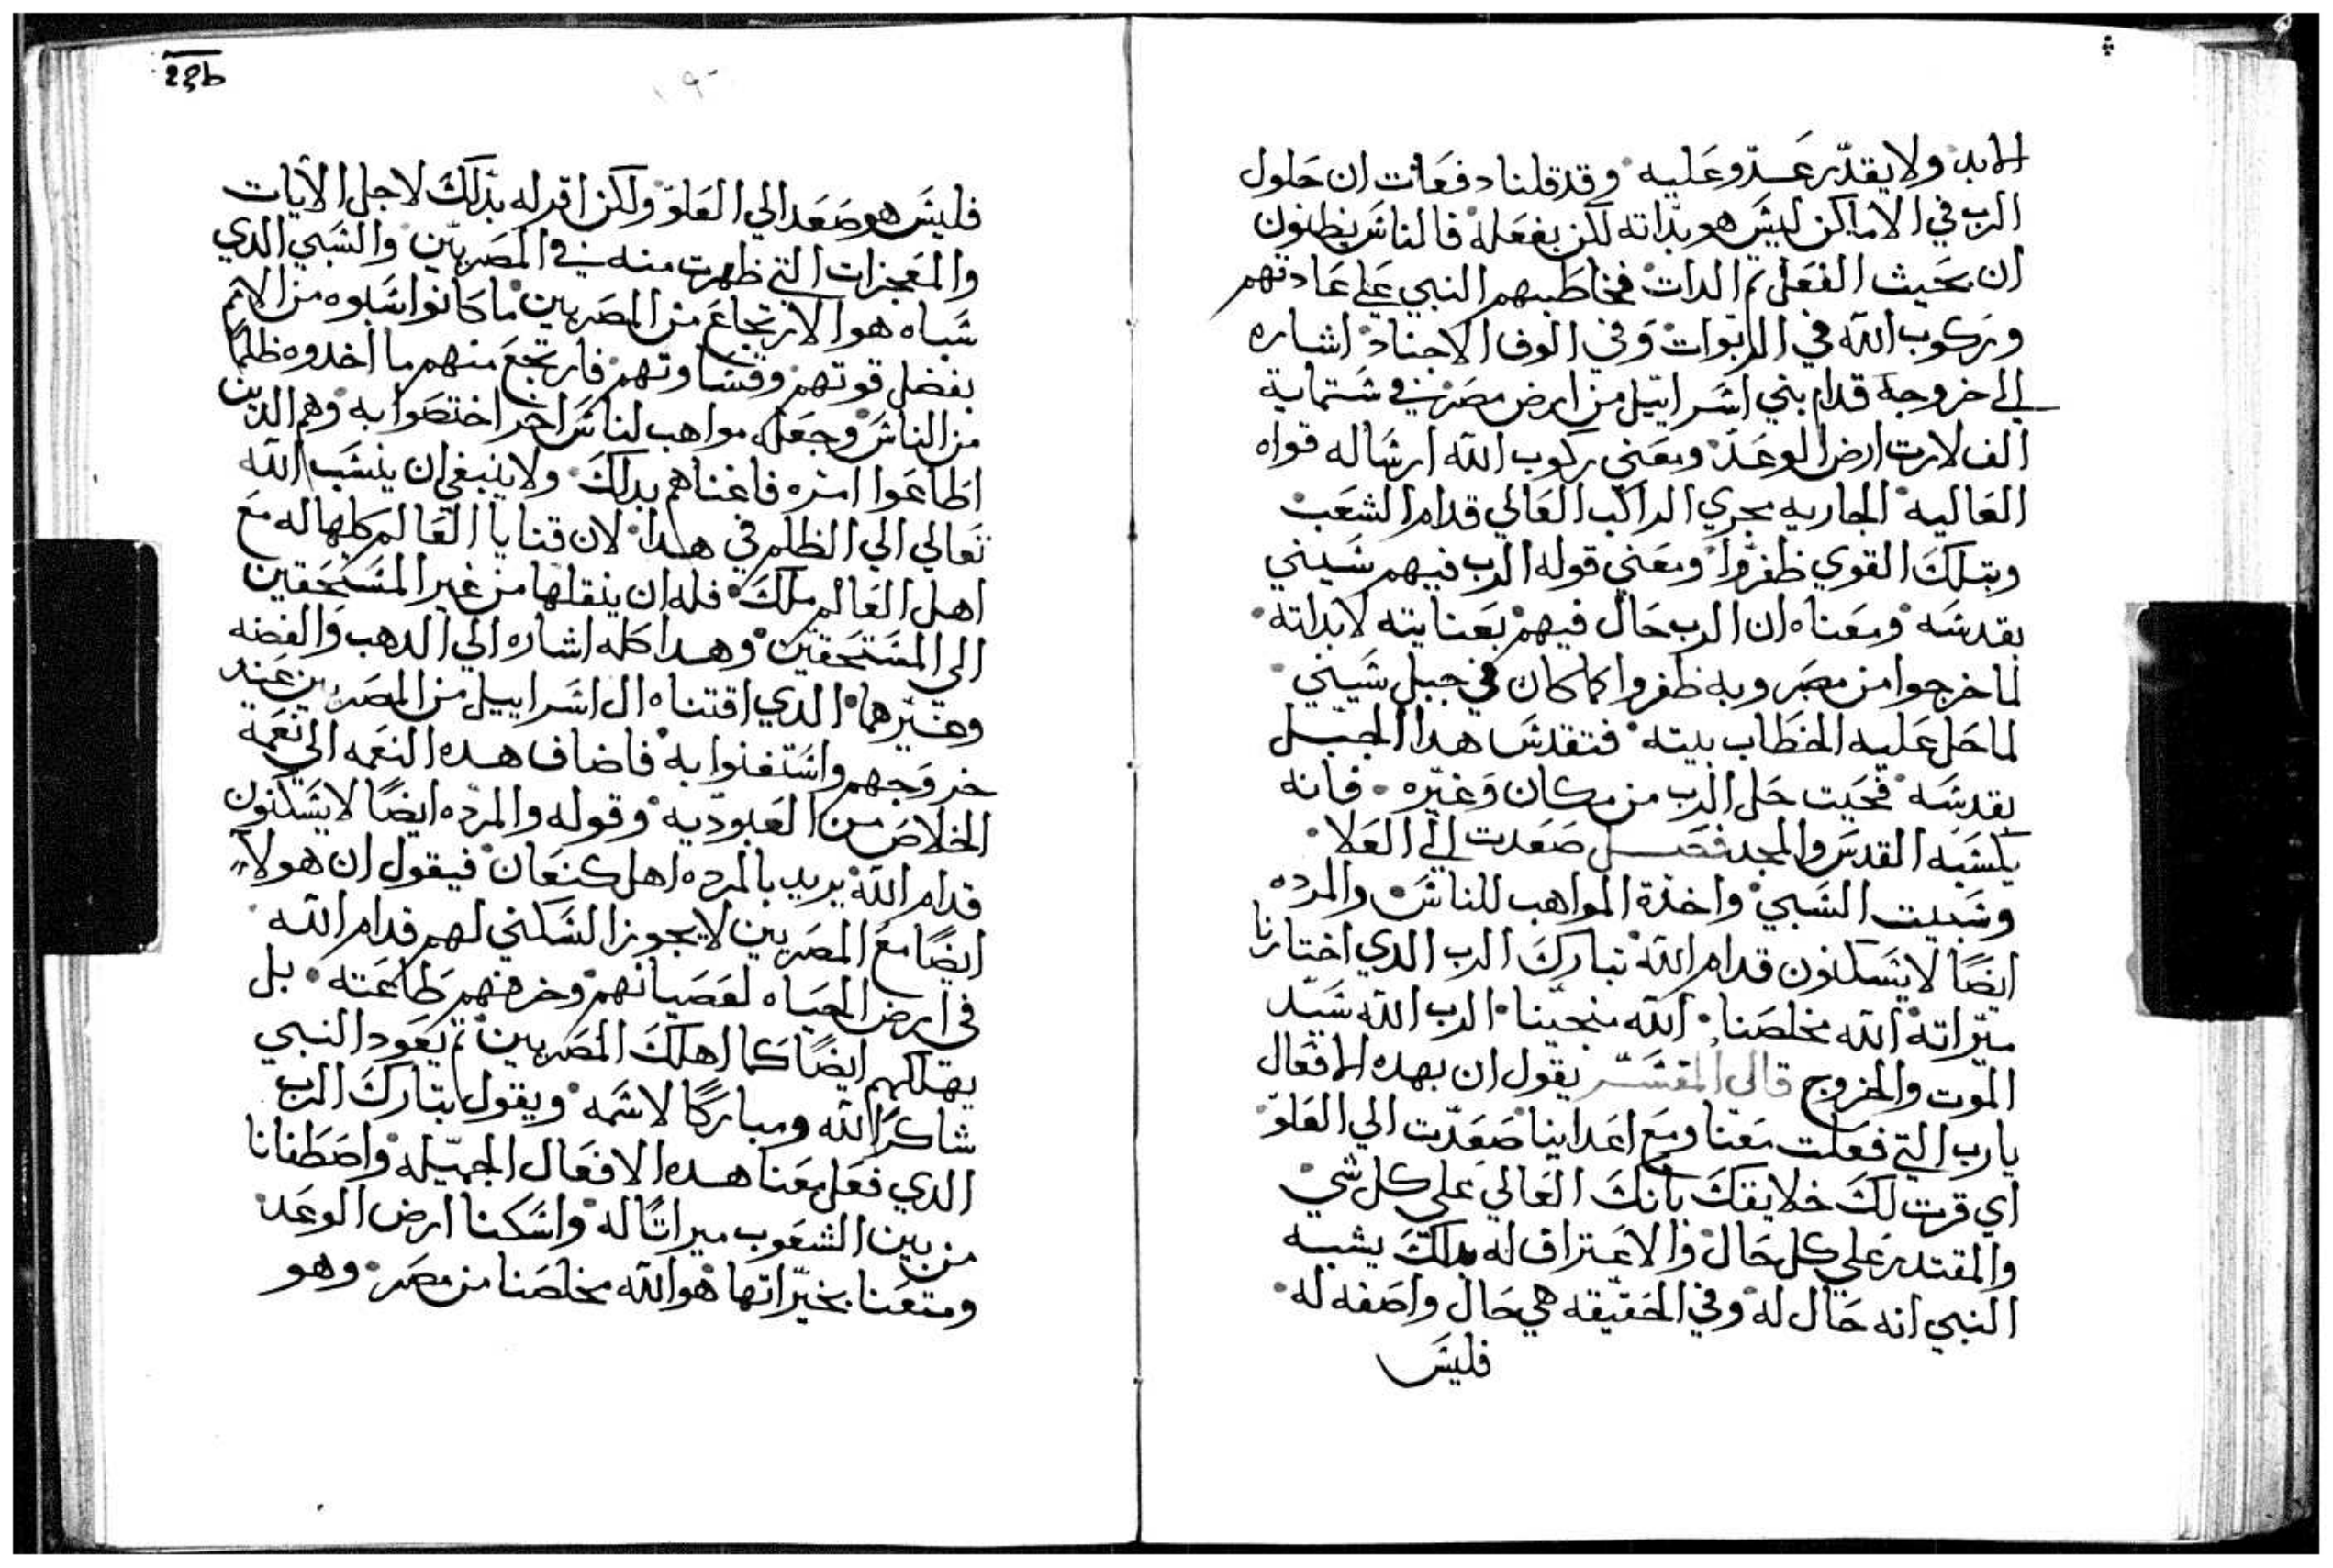 الابد ولا يقدّر عَدوّ عَليه وقد قلنا دفعَات ان حَلول
الرب في الاماكن ليسَ هو بداته لكن بفعَله فالناسَ يظنون
ان بحَيث الفعَل ثم الدات فخاطبهم النبي عَلي عَادتهم
وركوب الله في الربَوات وَفي الوف الاجناد اشاره
الي خروجه قدام بني اسَراييل من ارض مصَر في سَتماية
الف لارت ارض الوعَد ومعَني ركوب الله ارسَاله قواه
العَاليه الجاريه مجري الراكب العَالي قدام الشعَب
وبتلكَ القوي ظفروا ومعَني قوله الرب فيهم سَيني
بقدسَه ومعَناه ان الرب حَال فيهم بعَنايته لا بداته
لما خرجوا من مصَر وبه ظفروا كما كان في جبل سَيني
لما حَل عَليه الخطاب بيته فتقدسَ هدا الجبل
بقدسَه فحَيت حَل الرب من مكان وَغيره فانه
يكسَبه القدسَ والمجد فصَل صَعَدت الي العَلا
وسَبيت السَبي واخدة المواهب للناسَ والمرده
ايضًا لا يسَكنون قدام الله تباركَ الرب الدي اختارنا
ميراته الله مخلصَنا الله منجينا الرب الله سَيّد
الموت والخروج قال المفسَّر يقول ان بهده الافعَال
يارب التي فعَلت معَنا ومعَ اعَداينا صَعَدت الي العَلوّ
اي قرت لكَ خلايقكَ بانكَ العَالي عَلي كل شي
والمقتدر عَلي كل حَال والاعَتراف له بدلكَ يشبه
النبي انه حَال له وفي الحَقيقه هي حَال واصَفه له
فليسَ
23b
١٩
فليسَ هو صَعَد الي العَلوّ ولكن اقر له بدلكَ لاجل الايات
والمعَجزات التي ظهرت منه في المصَريّين والسَبي الدي
سَباه هو الارتجاعَ من المصَريين ما كانوا سَلبوه من الامم
بفضل قوتهم وقسَاوتهم فارتجعَ منهم ما اخدوه ظلمًا
من الناسَ وجعَله مواهب لناسَ اخر اختصَوا به وهم الدين
اطاعَوا امره فاغناهم بدلكَ ولا ينبغي ان ينسَب الله
تعَالي الي الظلم في هدا لان قنايا العَالم كلها له معَ
اهل العَالم ملكَ فله ان ينقلها من غير المسَتحَقين
الي المسَتحَقين وهدا كله اشاره الي الدهب والفضه
وغيرهما الدي اقتناه ال اسَراييل من المصَريين عَند
خروجهم واسَتغنوا به فاضاف هده النعَمه الي نعَمة
الخلاصَ من العَبوديه وقوله والمرده ايضًا لا يسَكنون
قدام الله يريد بالمرده اهل كنعَان فيقول ان هولاء
ايضًا معَ المصَريين لا يجوز السَكني لهم قدام الله
في ارض الحَياه لعَصَيانهم وخرفهم طاعَته بل
يهتلكهم ايضًا كما اهلكَ المصَريين ثم يعَود النبي
شاكرًا لله ومباركًا لاسَمه ويقول تباركَ الرب
الدي فعَل معَنا هده الافعَال الجميله واصَطفانا
من بين الشعَوب ميراتًا له واسَكنا ارض الوعَد
ومتعَنا بخيراتها هو الله مخلصَنا من مصَر وهو